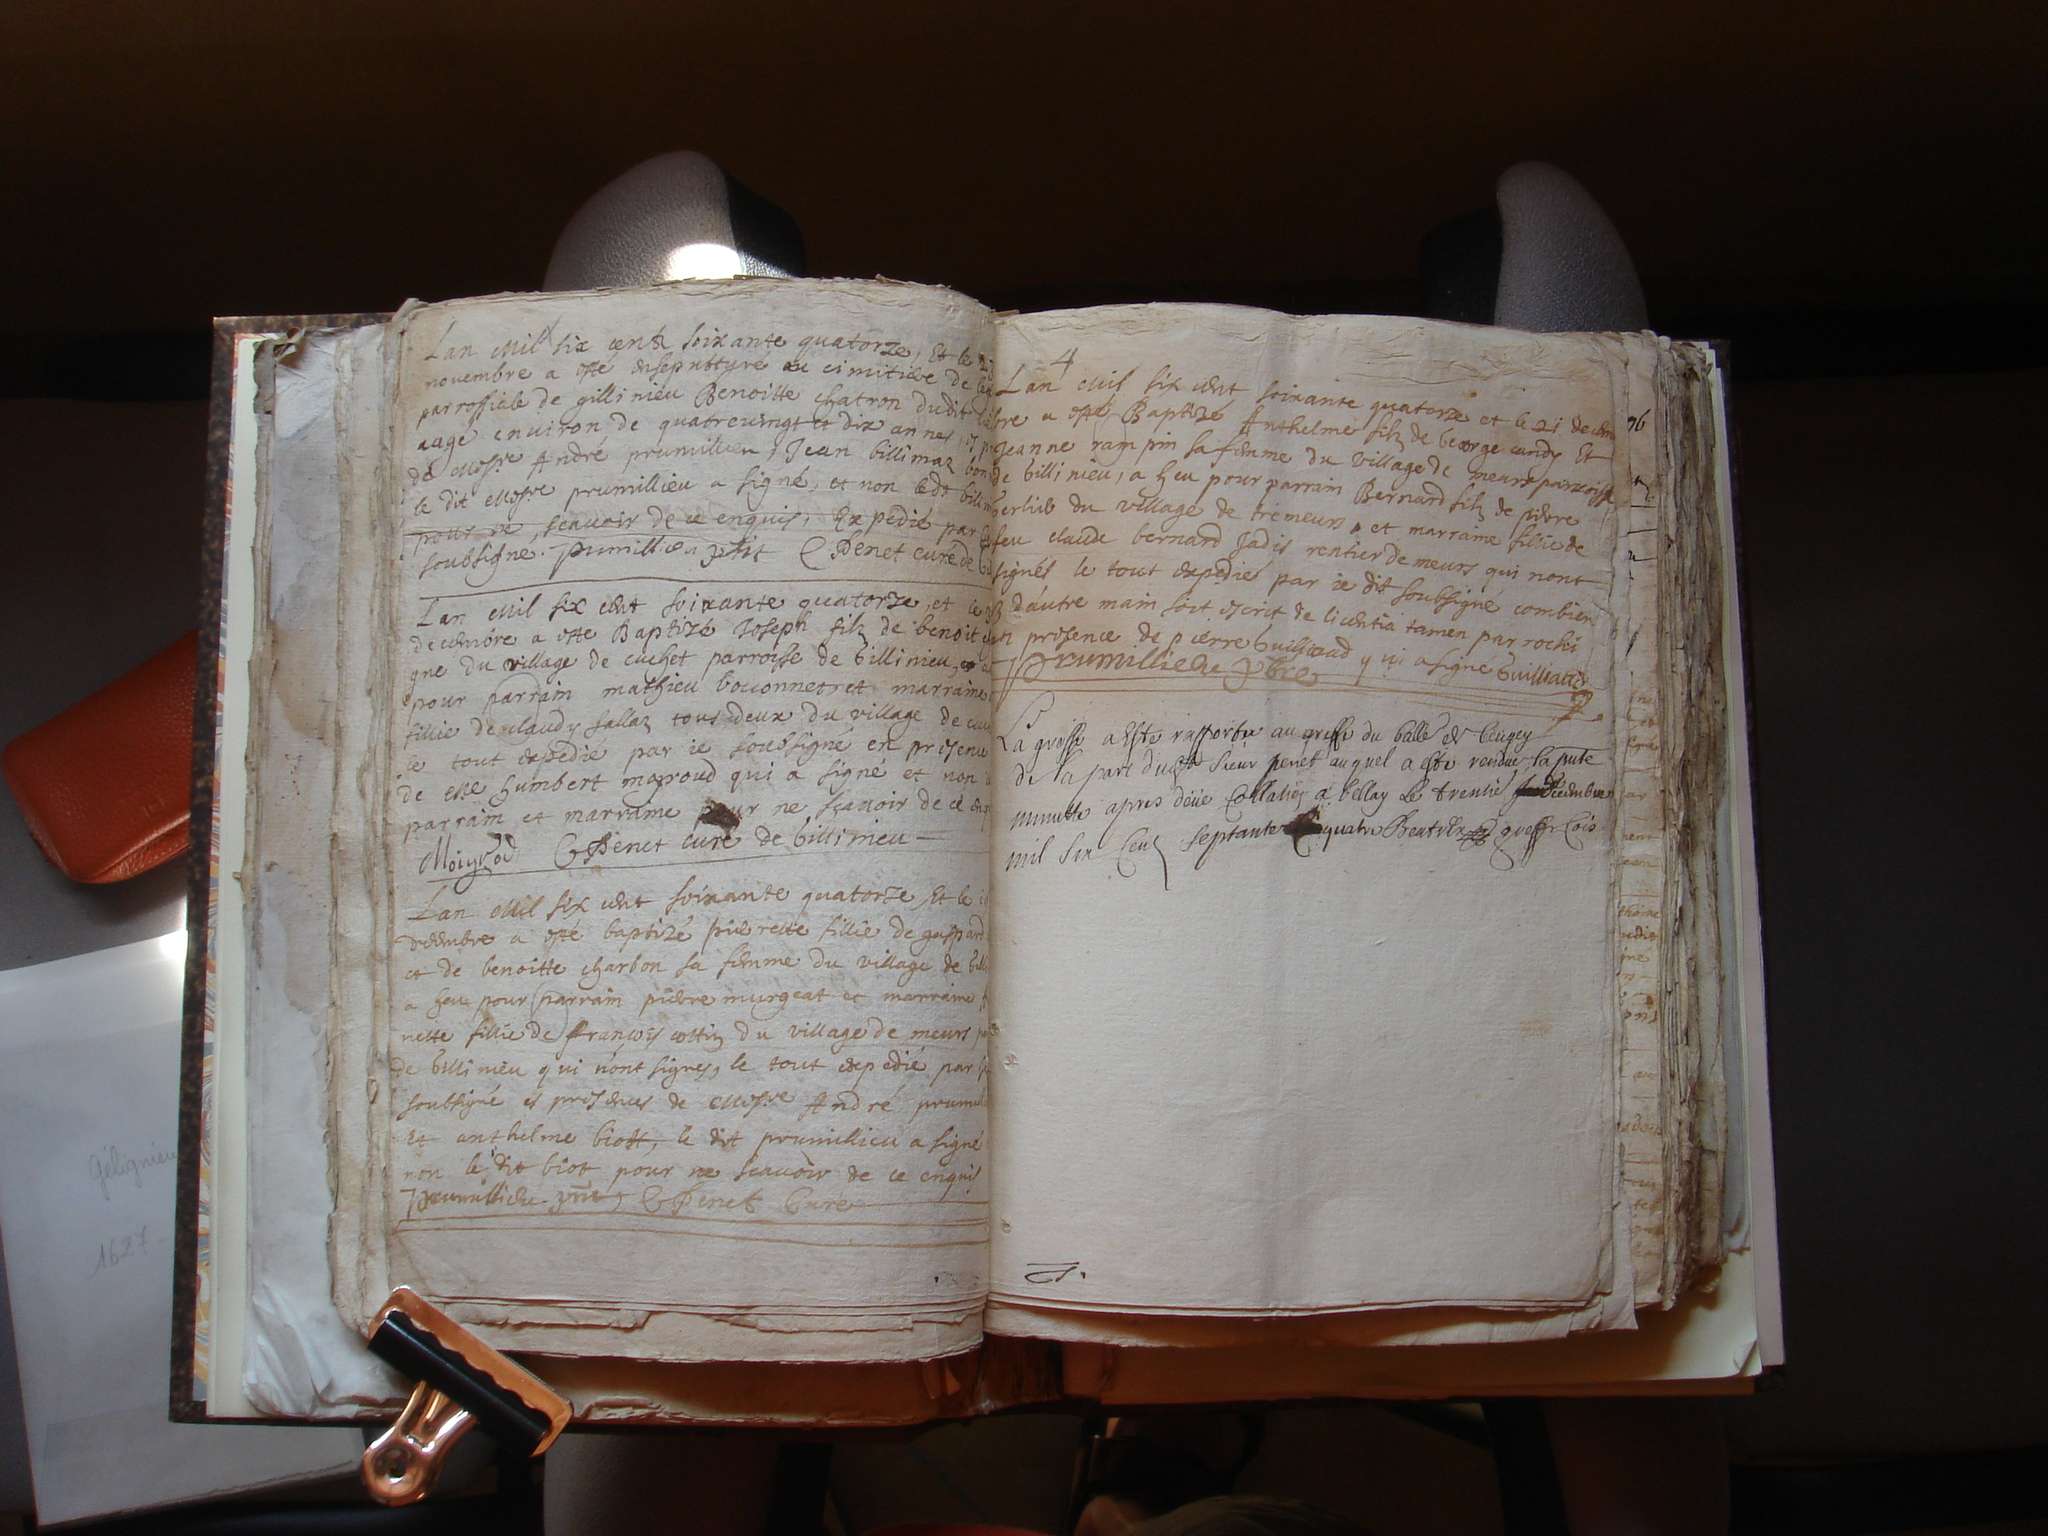 Lan Mil six cents soixante quatorze, Et le
novembre a esté ensepulturé au cimitiere de
parrossiale de gillinieu Benoitte chatron dudit
aage environ de quatrevingt et dix annes,
de Messre André prumillieu, Jean billimaz
le dit Messre prumillieu a signé, et non ledt
pour ne scavoir de ce enquis, Expedié par
soubsigne. prumillieu C Penet curé de
Lan Mil six cent soixante quatorze, et le
decembre a esté Baptizé Joseph filz de benoit
gne du village de cuchet parroisse de billinieu,
pour parrain mathieu bouonnet et marraine
fillie de claudy sallaz tous deux du village de
le tout expedié par ie soubsigné en presence
de Me humbert moyroud qui a signé et non
parrain et marraine pour ne sçavoir de ce
Moiyrod C Penet curé de billinieu
Lan Mil six cent soixante quatorze, Et le
decembre a esté baptizé pierrette fillie de gaspard
et de benoitte charbon sa femme du village de
a heu pour parrain pierre murgeat et marraine
nette fillie de françois cottin du village de meurs
de billinieu qui nont signes, le tout expedié par
soubsigné es presences de Messre André
Et anthelme biott, le dit prumillieu a signé
non le dit biot pour ne scavoir de ce enquis
prumillieu C Penet Curé
4
Lan Mil six cent soixante quatorze et le 21 decem
bre a esté Baptizé Anthelme filz de George candy Et
Jeanne rampin sa femme du village de meurs parroisse
de billinieu, a heu pour parrain Bernard filz de pierre
berlio du village de tremeurs, et marraine fillie de
feu claude bernard Jadis rentier de meurs qui nont
signés le tout expedié par ie dit soubsigné combien
dautre main soit escrit de licentia tamen parrochi
en presence de pierre Guilliaud qui a signe Guilliaud
Prumillieu
La grosse a Esté rapportée au greffe du balle de beugey
de la part dudt sieur penet auquel a esté rendue la pnte
minutte apres deüe Collation a bellay Le trentié decembre
mil six Cens septante quatre
96
Gélignieu
1627